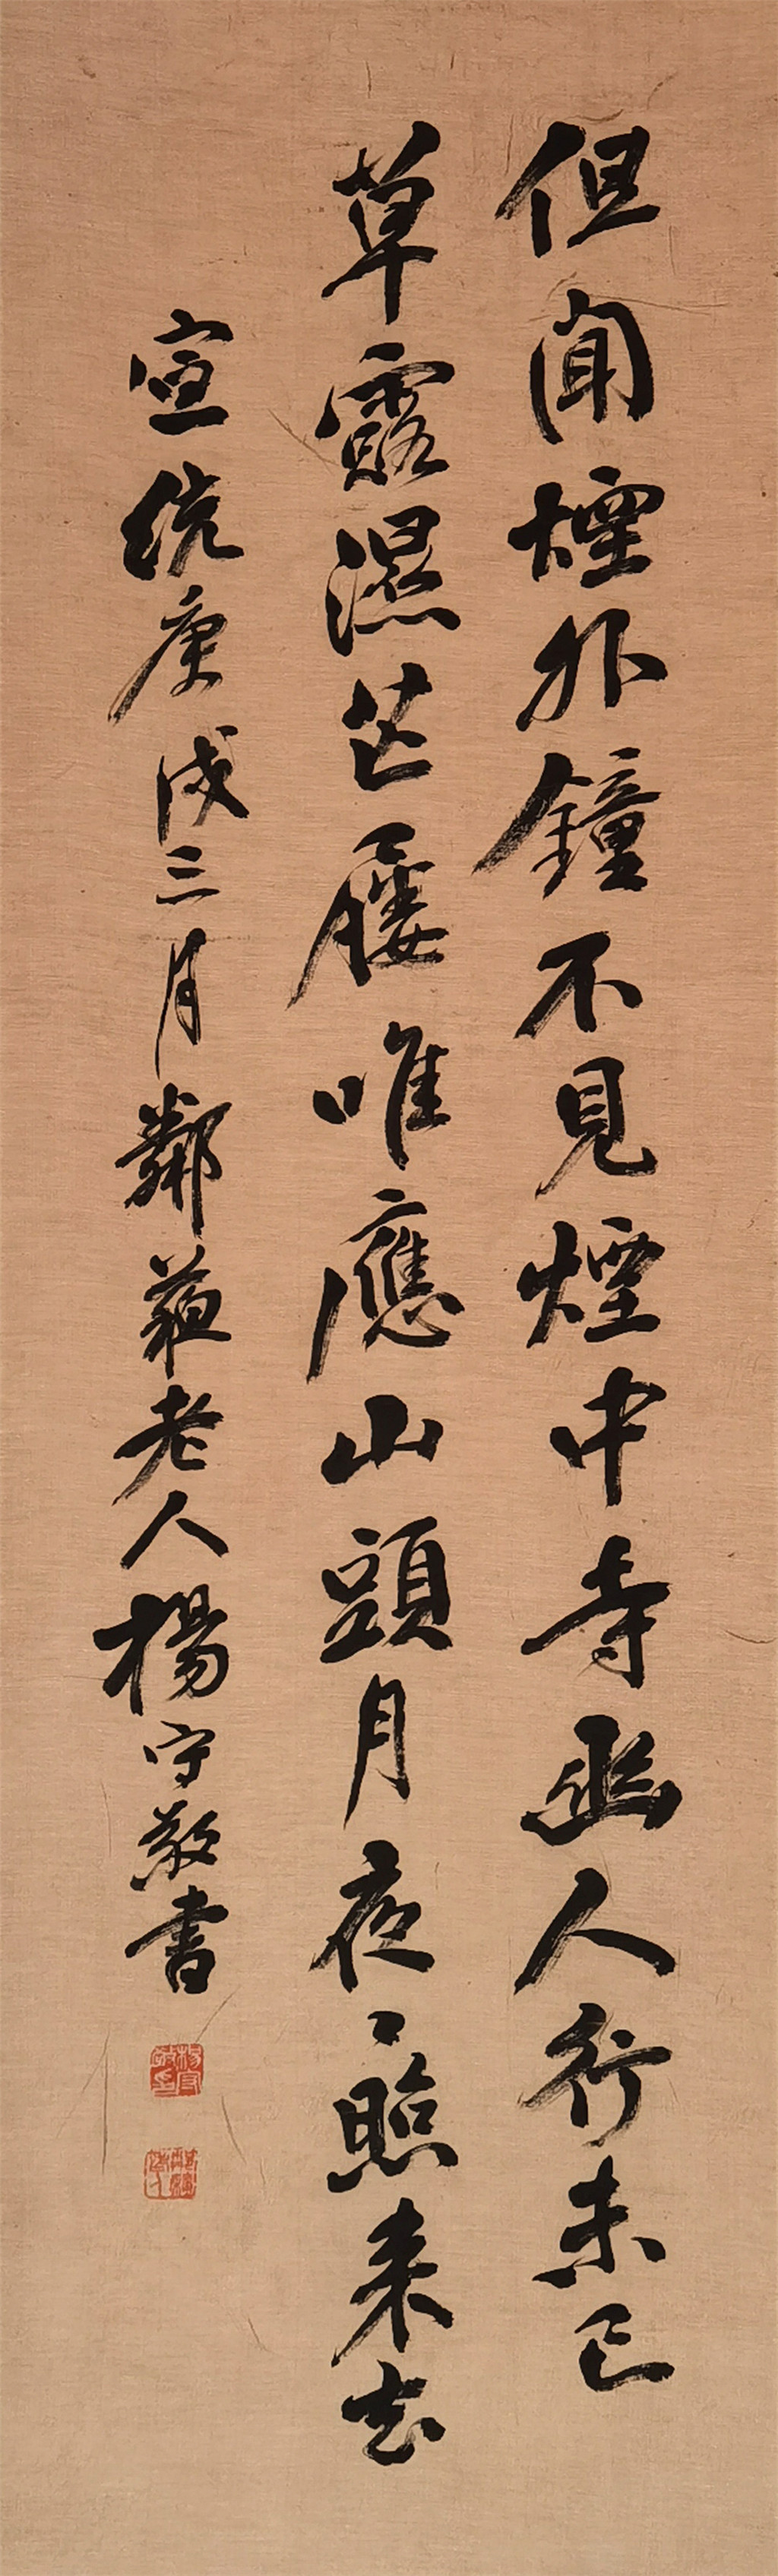 但聞煙外鐘不見煙中寺幽人行未已
草露濕芒屨唯應山頭月夜〻照来去
宣統庚戌三月鄰蘇老人楊守敬書